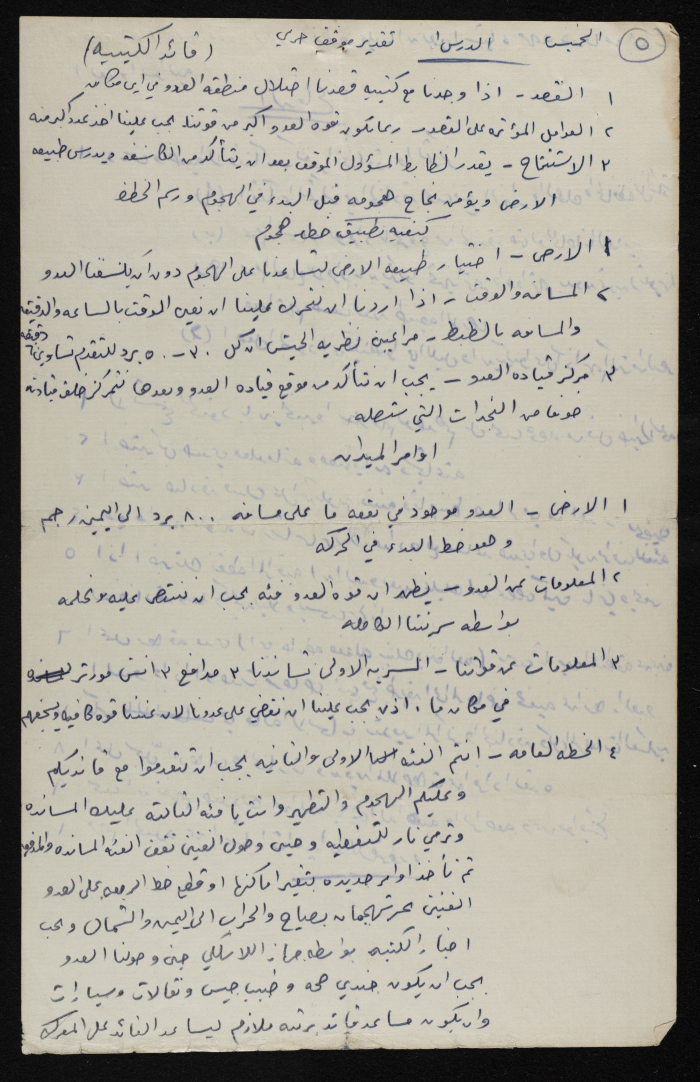 ٥
الخميس الدرس ١ تقدير موقف حربي (قائد الكتيبه)
١ القصد - اذا وجدنا مع كتيبه قصدنا احتلال منطقه العدو في اي مكان
٢ العوامل المؤثره على القصد - ربما تكون قوه العدو اكبر من قوتنا يجب علينا اخذ عدد اكبر منه
٣ الاستنتاج - يقدر الضابط المسؤول الموقف بعد ان يتأكد من الكاشفه ويدرس طبيعه
الارض ويؤمن نجاح هجومه قبل البدء في الهجوم ورسم الخطط
كيفيه تطبيق خطه هجوم
١ الارض - اختيار طبيعه الارض لتساعدنا على الهجوم دون ان يكشفنا العدو
٢ المسافه والوقت - اذا اردنا ان نتحرك علينا ان نعين الوقت بالساعه والدقيقه
والمسافه بالضبط - مراعين نظريه الجيش ان كل ٣٠ - ٥٠ يرد للتقدم تساوي ٦ دقيقه
٣ مركز قياده العدو - يجب ان نتأكد من موقع قياده العدو وبعدها نتمركز خلف قيادته
خوفا من النجدات التي ستصله
اوامر الميدان
١ الارض - العدو موجود في نقعه ما على مسافه ٨٠٠ يرد الى اليمين رجم
وهو خط البدء في الحركه
٢ المعلومات عن العدو - يظهر ان قوه العدو فئه يجب ان ننقض عليه ونحلمه
بواسطه سريتنا الكامله
٣ المعلومات عن قواتنا - السريه الاولى تساندنا ٣ مدافع ٣ انش مورتر
في مكان ما. اذن يجب علينا ان نقضي على عدونا لان عندنا قوه كافيه
٤ الخطه العامه - انتم الفئه الاولى والثانيه يجب ان تتقدموا مع قائديكم
وعليكم الهجوم والتطهير وانت يا فئه الثالثه عليك المسانده
وترمي نار للتغطيه وحين وصول الفئتين تقف الفئه المسانده
ثم تأخذ اوامر جديده بتغير اماكنها او قطع خط الرجعه على العدو
الفئتين تهجمان بصياح والحراب الى اليمين والشمال ويجب
اخبار الكتيبه بواسطه جهاز اللاسلكي حين وصولنا العدو
يجب ان يكون جندي صحه وطبيب جيش ونقالات وسيارات
وان يكون مساعد قائد برتبه ملازم ليساعد القائد على المعركه